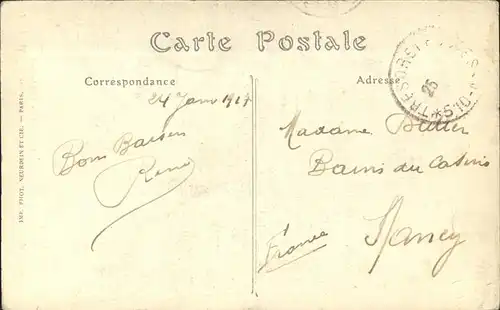 Carte Postale
Correspondance
Adresse
TRESOR ET POSTES
25
24 Janv 1917
Bons Baisers
René
Madame
Bains du Casino
Nancy
France
IMP. PHOT. NEURDEIN ET CIE. — PARIS.